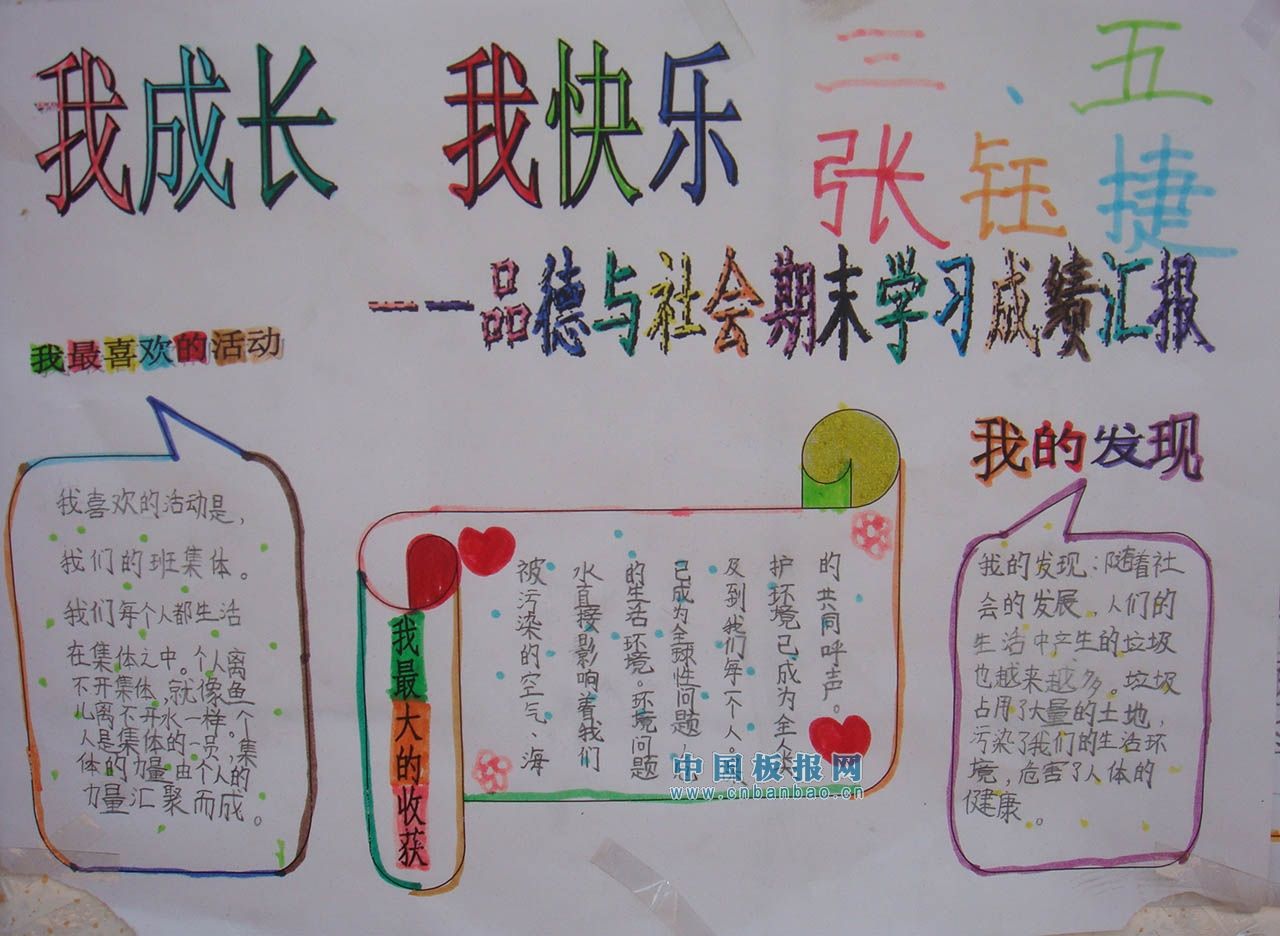 我成长 我快乐
三、五
张钰捷
——品德与社会期末学习成绩汇报
我最喜欢的活动
我喜欢的活动是，
我们的班集体。
我们每个人都生活
在集体之中。个人离
不开集体，就像鱼
儿离不开水一样。个
人是集体的一员，集
体的力量由个人的
力量汇聚而成。
我最大的收获
被污染的空气、海
水直接影响着我们
的生活环境。环境问题
已成为全球性问题，
及到我们每一个人。
护环境已成为全人类
的共同呼声。
我的发现
我的发现：随着社
会的发展，人们的
生活中产生的垃圾
也越来越多。垃圾
占用了大量的土地，
污染了我们的生活环
境，危害了人体的
健康。
中国板报网
www.cnbanbao.cn